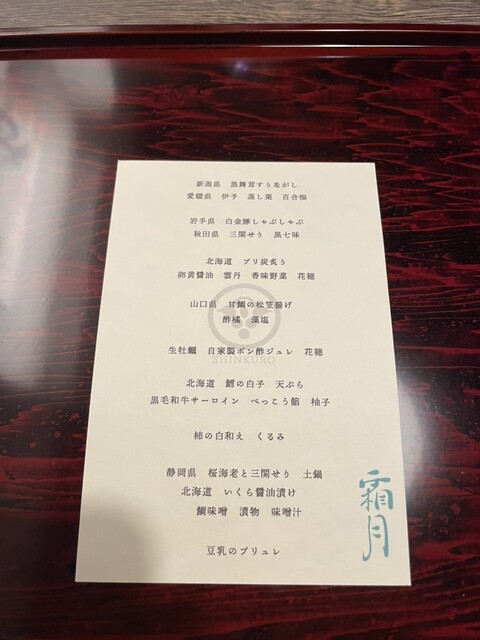 新潟県　黒舞茸すりながし
愛媛県　伊予　蒸し栗　百合根
岩手県　白金豚しゃぶしゃぶ
秋田県　三関せり　黒七味
北海道　ブリ炭炙り
卵黄醤油　雲丹　香味野菜　花穂
山口県　甘鯛の松笠揚げ
酢橘　藻塩
SHINKURO
生牡蠣　自家製ポン酢ジュレ　花穂
北海道　鱈の白子　天ぷら
黒毛和牛サーロイン　べっこう餡　柚子
柿の白和え　くるみ
静岡県　桜海老と三関せり　土鍋
北海道　いくら醤油漬け
鯛味噌　漬物　味噌汁
豆乳のブリュレ
霜月